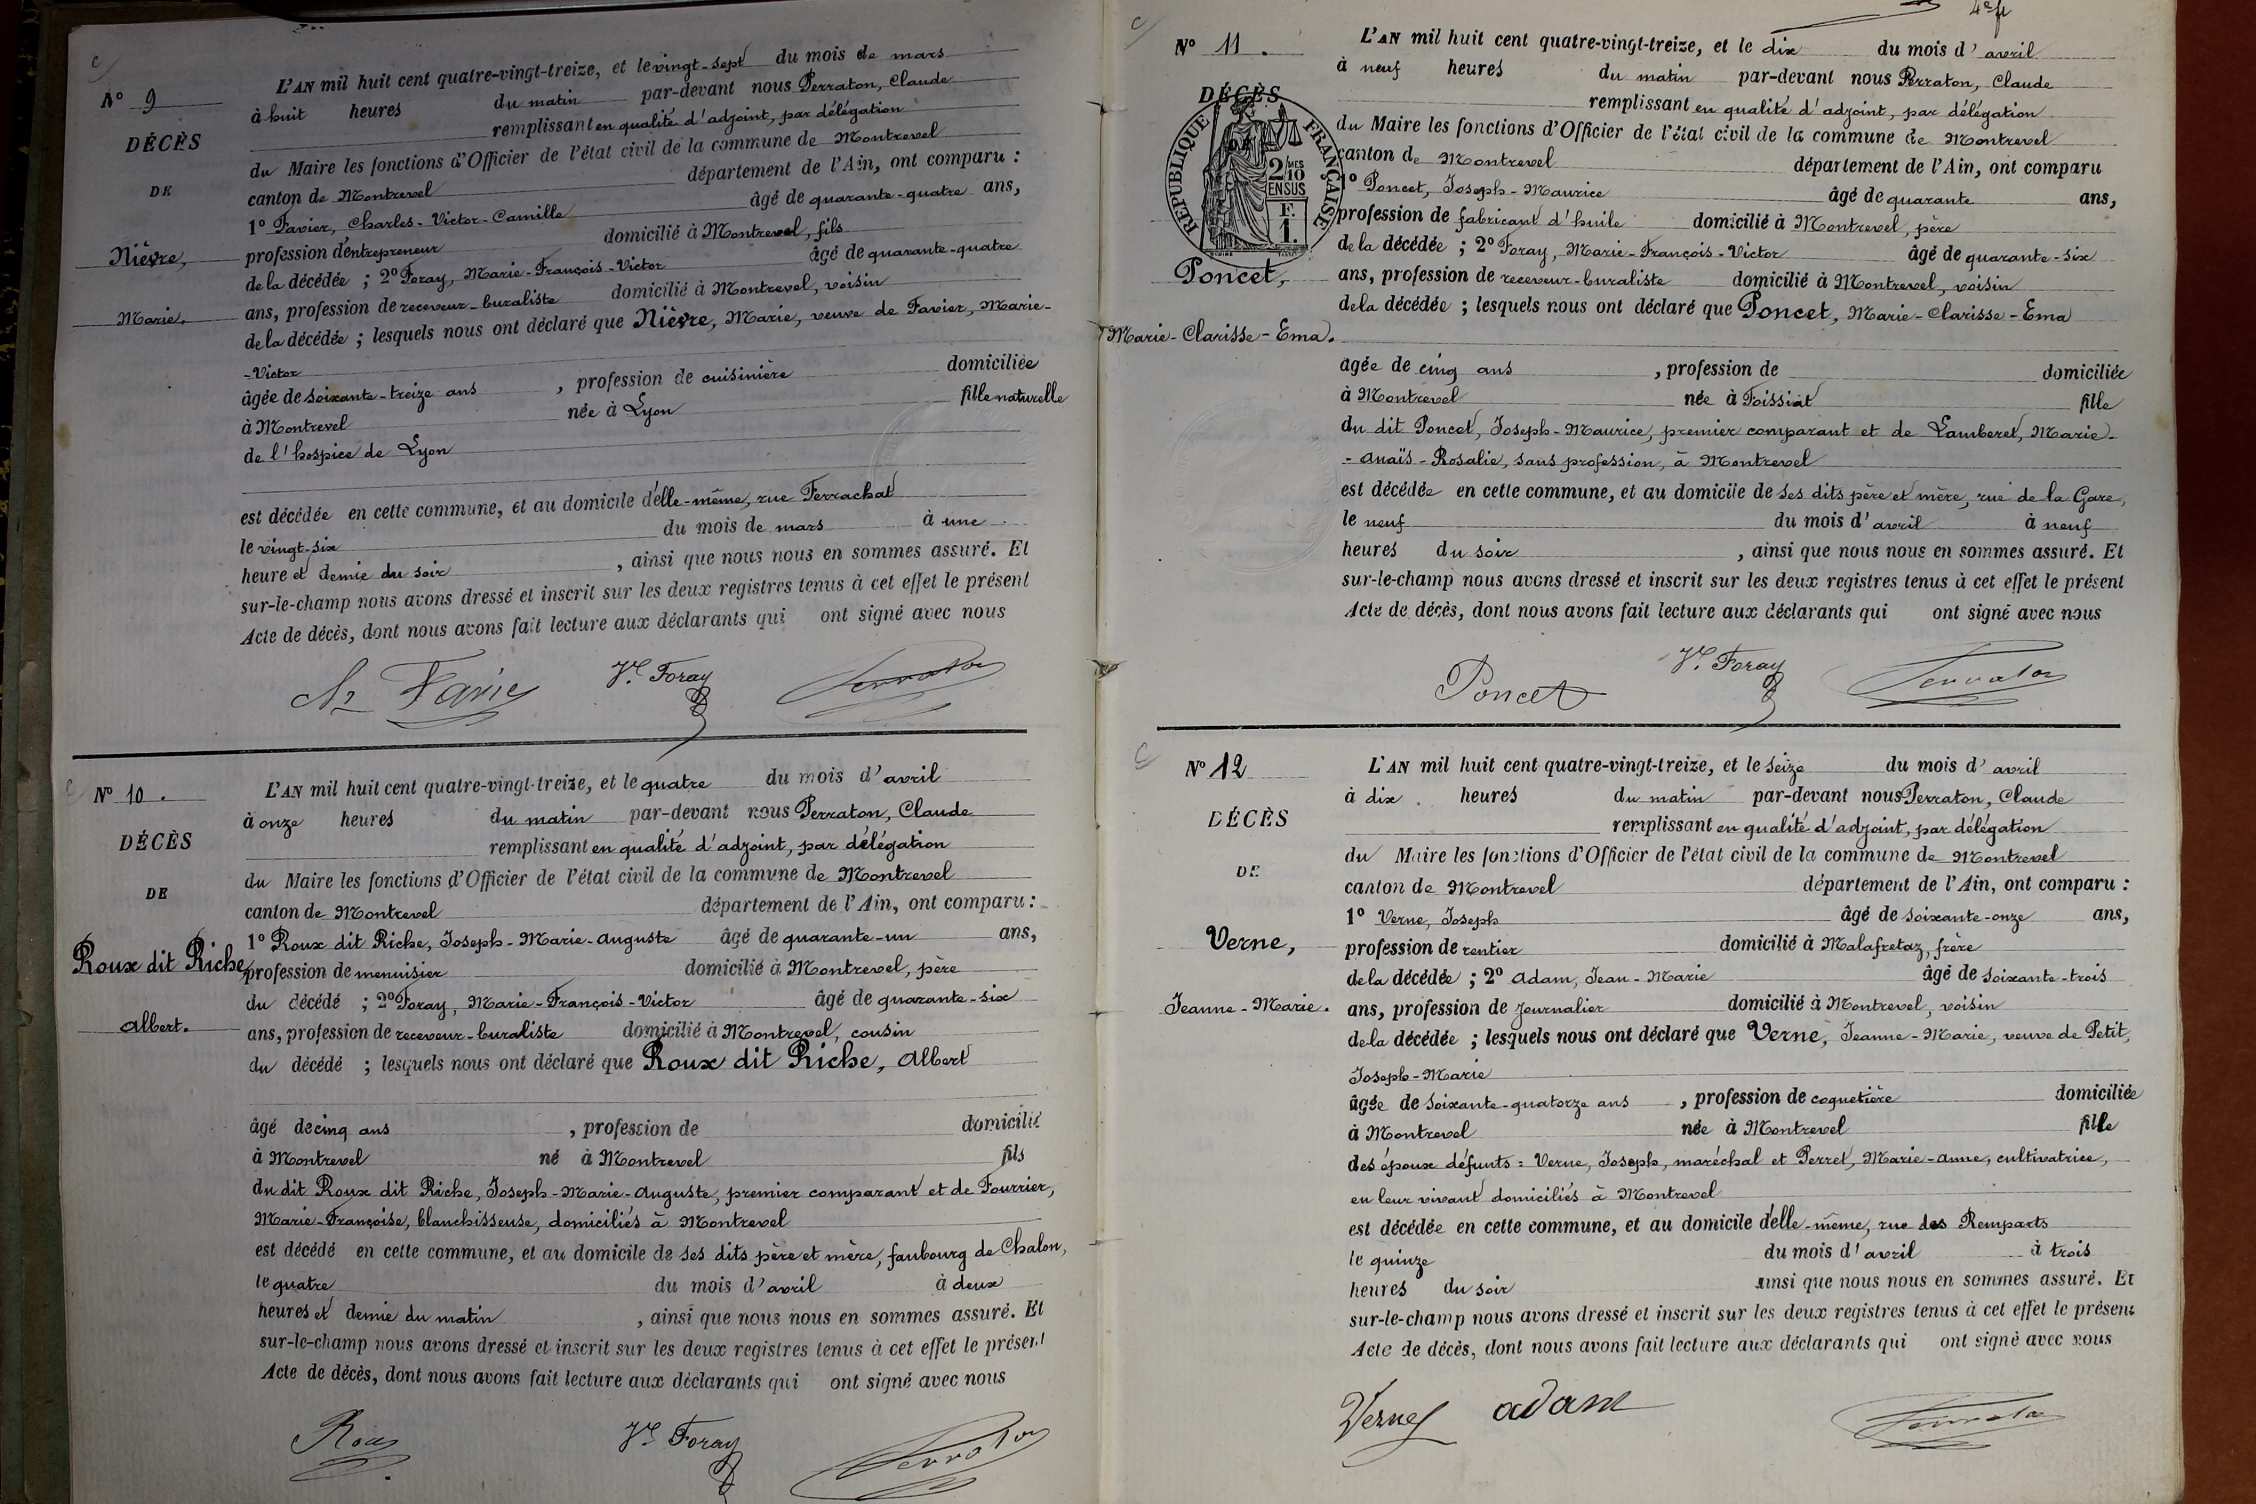 C
N° 9
DÉCÈS
DE
Nièvre,
Marie,
L'AN mil huit cent quatre-vingt-treize, et le vingt-sept du mois de mars
à huit heures du matin par-devant nous Perraton, Claude
remplissant en qualité d'adjoint, par délégation
du Maire les fonctions d'Officier de l'état civil de la commune de Montrevel
canton de Montrevel département de l'Ain, ont comparu :
1° Favier, Charles-Victor-Camille âgé de quarante-quatre ans,
profession d'entrepreneur domicilié à Montrevel, fils
de la décédée ; 2° Foray, Marie-François-Victor âgé de quarante-quatre
ans, profession de receveur-buraliste domicilié à Montrevel, voisin
de la décédée ; lesquels nous ont déclaré que Nièvre, Marie, veuve de Favier, Marie-
-Victor
âgée de soixante-treize ans , profession de cuisinière domiciliée
à Montrevel née à Lyon fille naturelle
de l'hospice de Lyon
est décédée en cette commune, et au domicile d'elle-même, rue Ferrachat
le vingt-six du mois de mars à une
heure et demie du soir , ainsi que nous nous en sommes assuré. Et
sur-le-champ nous avons dressé et inscrit sur les deux registres tenus à cet effet le présent
Acte de décès, dont nous avons fait lecture aux déclarants qui ont signé avec nous
V.r Foray Perraton
N° 10.
DÉCÈS
DE
Roux dit Riche
Albert.
L'AN mil huit cent quatre-vingt-treize, et le quatre du mois d'avril
à onze heures du matin par-devant nous Perraton, Claude
remplissant en qualité d'adjoint, par délégation
du Maire les fonctions d'Officier de l'état civil de la commune de Montrevel
canton de Montrevel département de l'Ain, ont comparu :
1° Roux dit Riche, Joseph-Marie-Auguste âgé de quarante-un ans,
profession de menuisier domicilié à Montrevel, père
du décédé ; 2° Foray, Marie-François-Victor âgé de quarante-six
ans, profession de receveur-buraliste domicilié à Montrevel, cousin
du décédé ; lesquels nous ont déclaré que Roux dit Riche, Albert
âgé de cinq ans , profession de domicilié
à Montrevel né à Montrevel fils
du dit Roux dit Riche, Joseph-Marie-Auguste, premier comparant et de Fourrier,
Marie-Françoise, blanchisseuse, domiciliés à Montrevel
est décédé en cette commune, et au domicile de ses dits père et mère, faubourg de Chalon,
le quatre du mois d'avril à deux
heures et demie du matin , ainsi que nous nous en sommes assuré. Et
sur-le-champ nous avons dressé et inscrit sur les deux registres tenus à cet effet le présent
Acte de décès, dont nous avons fait lecture aux déclarants qui ont signé avec nous
Roux V.r Foray Perraton
C
N° 11.
DÉCÈS
RÉPUBLIQUE FRANÇAISE
2 MES
10
EN SUS
F.
1.
Poncet,
Marie-Clarisse-Ema.
L'AN mil huit cent quatre-vingt-treize, et le dix du mois d'avril
à neuf heures du matin par-devant nous Perraton, Claude
remplissant en qualité d'adjoint, par délégation
du Maire les fonctions d'Officier de l'état civil de la commune de Montrevel
canton de Montrevel département de l'Ain, ont comparu
1° Poncet, Joseph-Maurice âgé de quarante ans,
profession de fabricant d'huile domicilié à Montrevel, père
de la décédée ; 2° Foray, Marie-François-Victor âgé de quarante-six
ans, profession de receveur-buraliste domicilié à Montrevel, voisin
de la décédée ; lesquels nous ont déclaré que Poncet, Marie-Clarisse-Ema
agée de cinq ans , profession de domiciliée
à Montrevel née à Foissiat fille
du dit Poncet, Joseph-Maurice, premier comparant et de Lamberet, Marie-
-Anaïs-Rosalie, sans profession, à Montrevel
est décédée en cette commune, et au domicile de ses dits père et mère, rue de la Gare,
le neuf du mois d'avril à neuf
heures du soir , ainsi que nous nous en sommes assuré. Et
sur-le-champ nous avons dressé et inscrit sur les deux registres tenus à cet effet le présent
Acte de décès, dont nous avons fait lecture aux déclarants qui ont signé avec nous
Poncet V.r Foray Perraton
C
N° 12
DÉCÈS
DE
Verne,
Jeanne-Marie.
L'AN mil huit cent quatre-vingt-treize, et le seize du mois d'avril
à dix heures du matin par-devant nous Perraton, Claude
remplissant en qualité d'adjoint, par délégation
du Maire les fonctions d'Officier de l'état civil de la commune de Montrevel
canton de Montrevel département de l'Ain, ont comparu :
1° Verne, Joseph âgé de soixante-onze ans,
profession de rentier domicilié à Malafretaz, frère
de la décédée ; 2° Adam, Jean-Marie âgé de soixante-trois
ans, profession de journalier domicilié à Montrevel, voisin
de la décédée ; lesquels nous ont déclaré que Verne, Jeanne-Marie, veuve de Petit,
Joseph-Marie
âgée de soixante-quatorze ans , profession de coquetière domiciliée
à Montrevel née à Montrevel fille
des époux défunts : Verne, Joseph, maréchal et Perret, Marie-Anne, cultivatrice,
en leur vivant domiciliés à Montrevel
est décédée en cette commune, et au domicile d'elle-même, rue des Remparts
le quinze du mois d'avril à trois
heures du soir ainsi que nous nous en sommes assuré. Et
sur-le-champ nous avons dressé et inscrit sur les deux registres tenus à cet effet le présent
Acte de décès, dont nous avons fait lecture aux déclarants qui ont signé avec nous
Verne adam Perraton